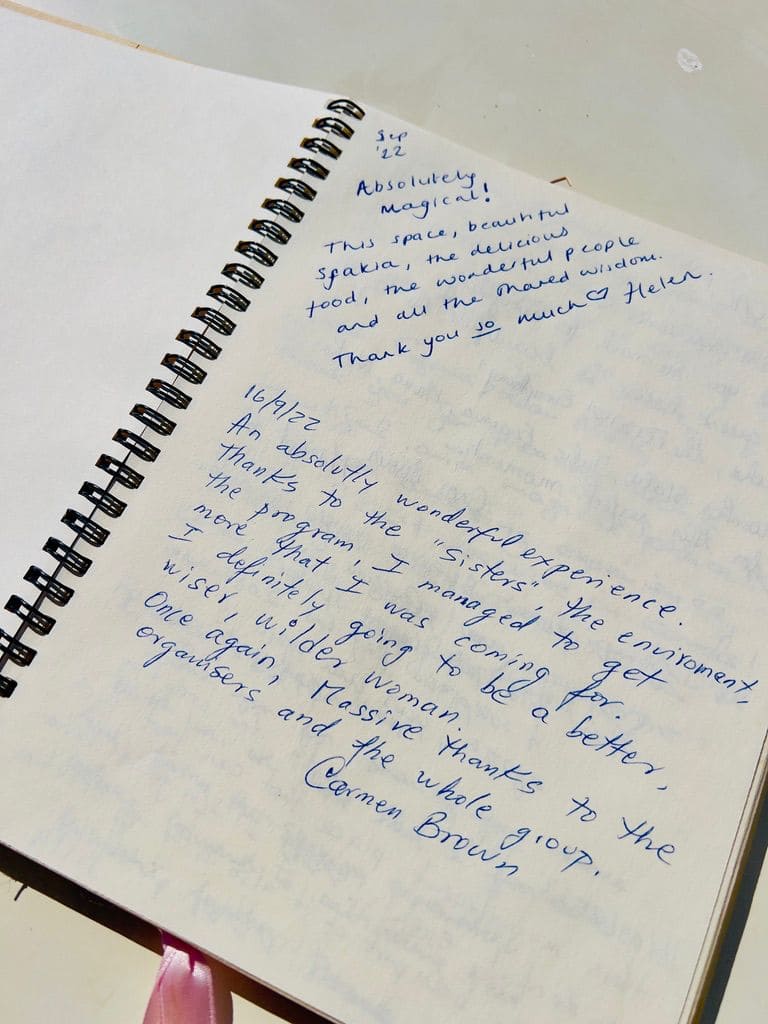 Sep
'22
Absolutely
Magical!
This space, beautiful
Sfakia, the delicious
food, the wonderful people
and all the shared wisdom.
Thank you so much ♡ Helen.
16/9/22
An absolutly wonderful experience.
Thanks to the "Sisters", the enviroment,
the program, I managed to get
more that I was coming for.
I definitely going to be a better,
wiser, wilder woman.
Once again, Massive thanks to the
organisers and the whole group.
Carmen Brown